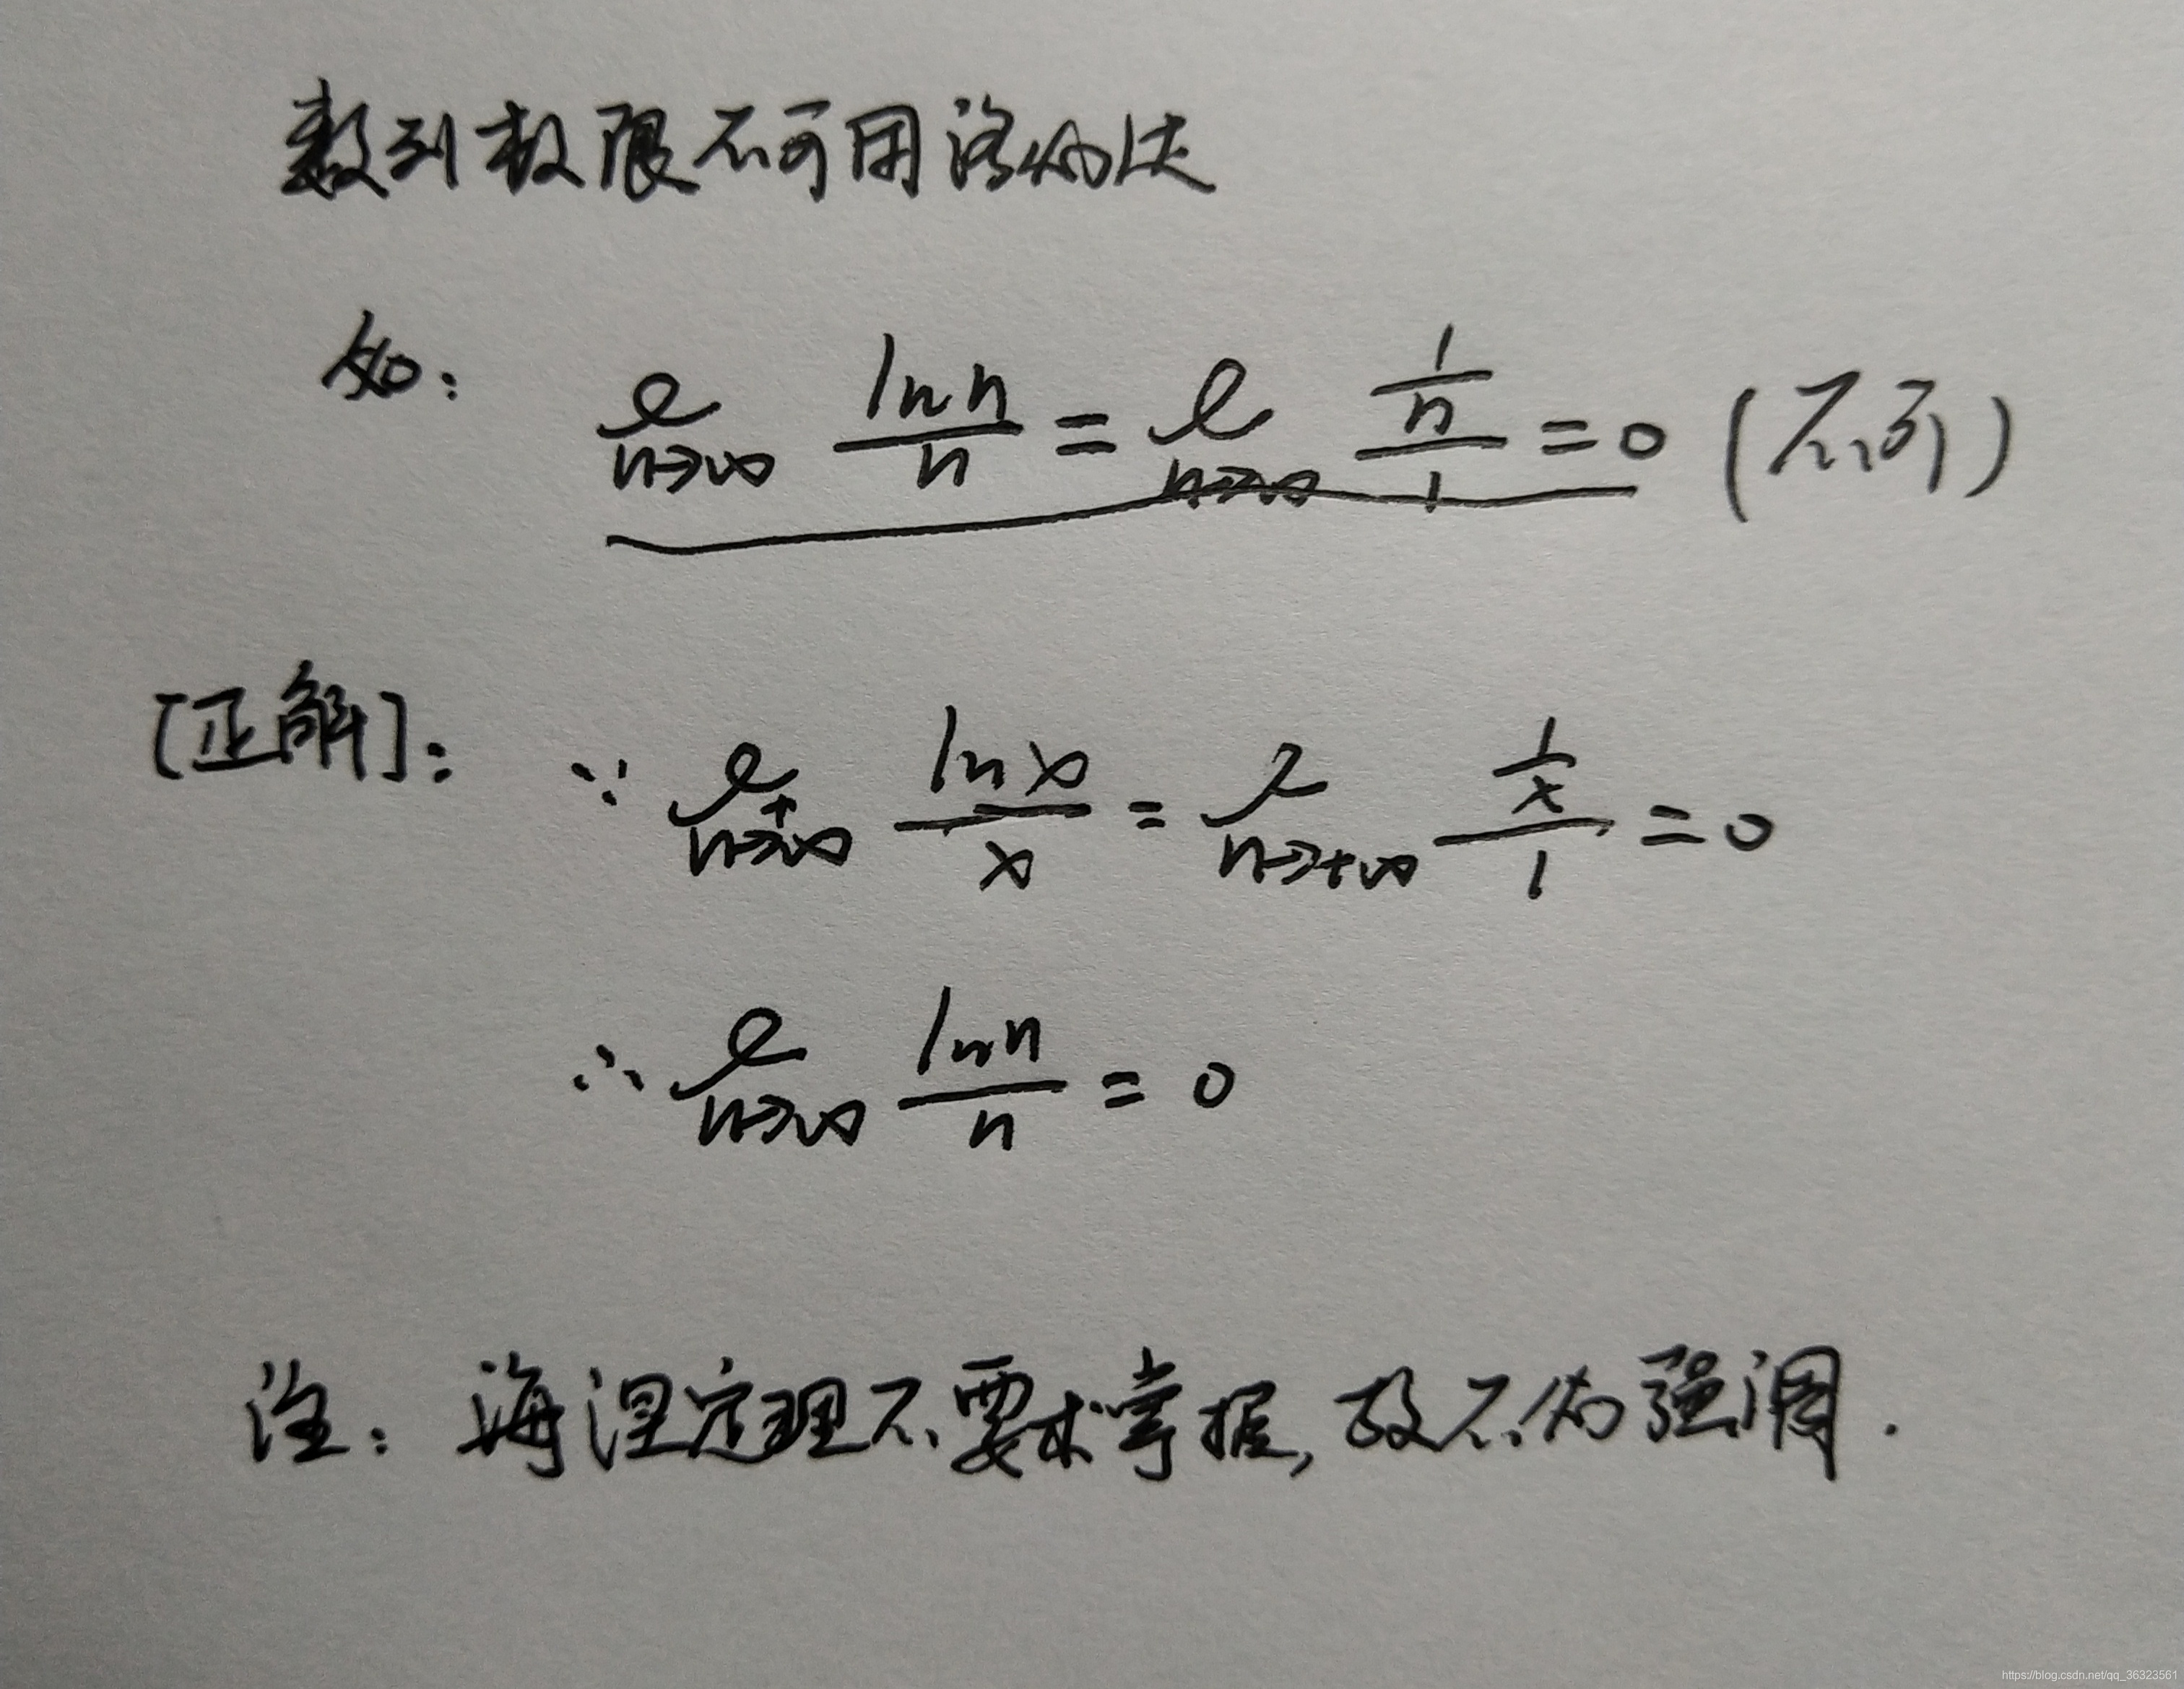 数列极限不可用洛必达法
如: lim n→∞ ln n / n = lim n→∞ (1/n) / 1 = 0 (不可)
[正解]: ∵ lim n→+∞ ln x / x = lim n→+∞ (1/x) / 1 = 0
∴ lim n→∞ ln n / n = 0
注: 海涅定理不要求掌握, 故不为强调.
https://blog.csdn.net/qq_36323561